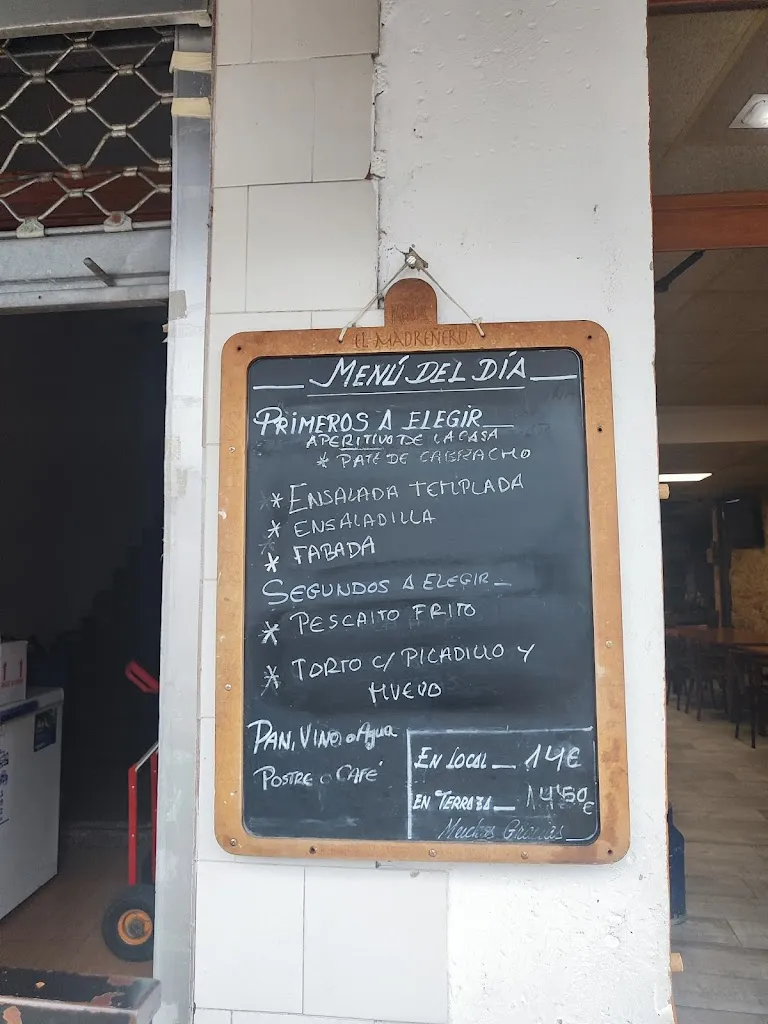 EL MADREÑERU
MENÚ DEL DÍA
PRIMEROS A ELEGIR
APERITIVO DE LA CASA
* PATE DE CABRACHO
* ENSALADA TEMPLADA
* ENSALADILLA
* FABADA
SEGUNDOS A ELEGIR
* PESCAITO FRITO
* TORTO C/ PICADILLO Y
HUEVO
PAN, VINO o Agua
POSTRE o CAFÉ
EN LOCAL — 14€
EN TERRAZA — 14'50€
Muchas Gracias